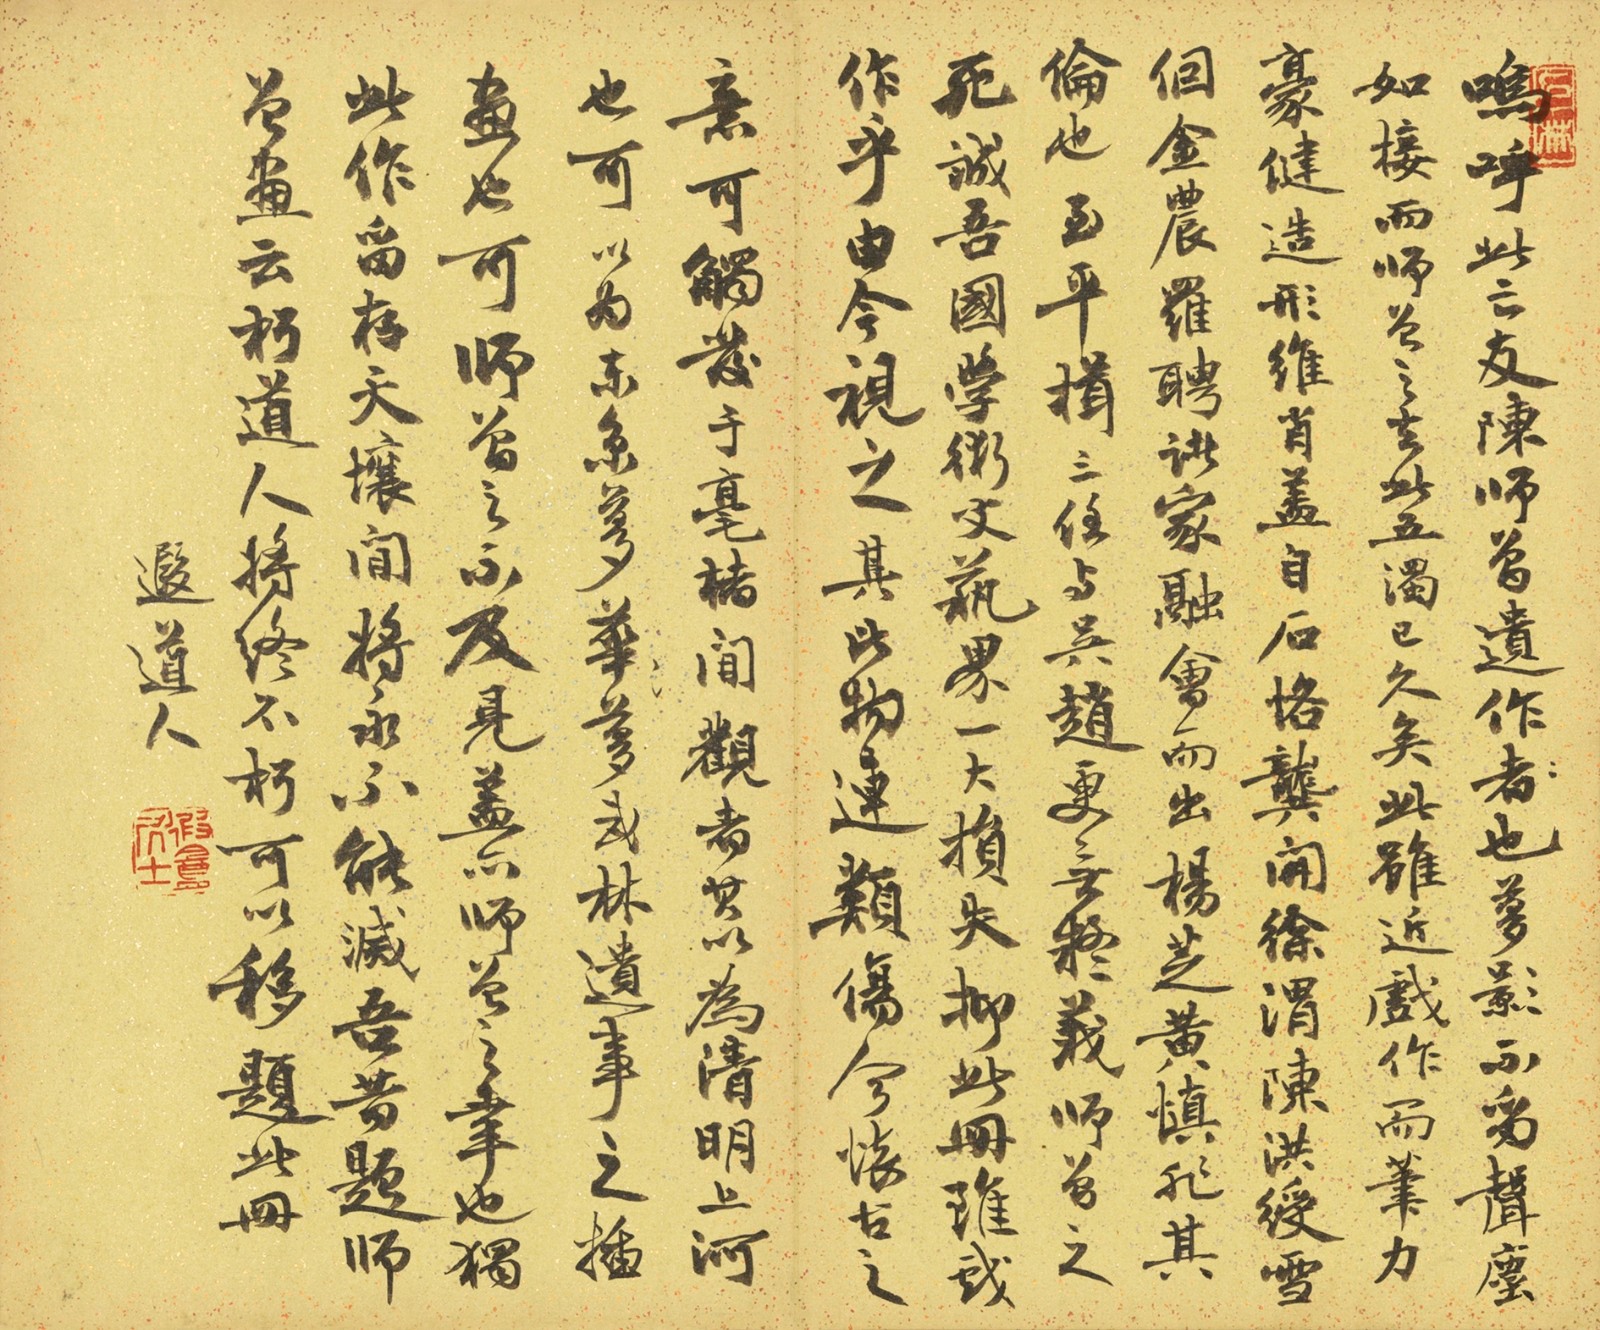 嗚呼此亡友陳師曾遺作者也夢影不留聲塵
如接而師曾之去此五濁已久矣此雖近戲作而筆力
豪健造形維肖蓋自石恪龔開徐渭陳洪綬雪
個金農羅聘諸家融會而出楊芝黃慎非其
倫也至平揖三任与吳趙更無疑義師曾之
死誠吾國學術文藝界一大損失抑此冊雖戲
作乎由今視之其比物連類傷今懷古之
意可觸發于毫楮間觀者其以為清明上河
也可以為東京夢華夢武林遺事之插
畫也可師曾之不及見蓋亦師曾之幸也獨
此作留存天壤間將永不能滅吾昔題師
曾畫云朽道人將終不朽可以移題此冊
遐道人